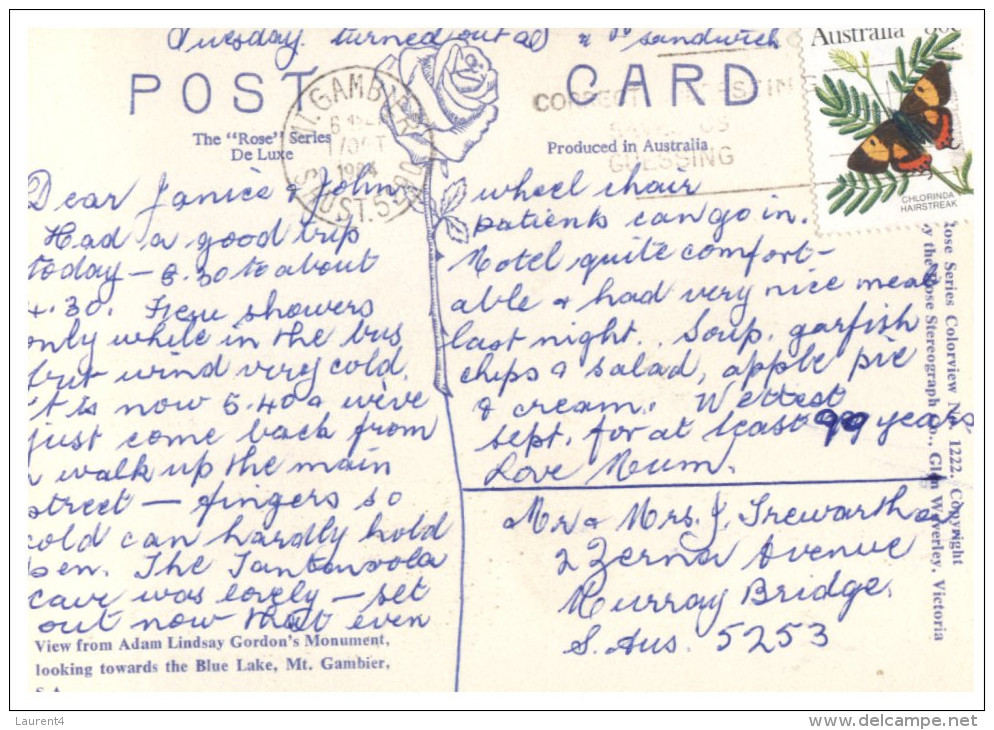 Tuesday. turned out a sandwich
POST CARD
MT. GAMBIER
1984
STH. AUST. 5290
CORRECT POSTCODE
GUESSING
Australia 80c
CHLORINDA
HAIRSTREAK
The "Rose" Series
De Luxe
Produced in Australia
Dear Janice & John,
Had a good trip
today – 8.30 to about
4.30. Few showers
only while in the bus
but wind very cold.
It is now 5.40 & we've
just come back from
a walk up the main
street – fingers so
cold can hardly hold
pen. The Tantanoola
cave was lovely – set
out now that even
wheel chair
patients can go in.
Motel quite comfort-
able & had very nice meal
last night. Soup, garfish
chips & salad, apple pie
& cream. Wettest
Sept. for at least 99 years
Love Mum.
Mr & Mrs. J. Trewartha
2 Zerna Avenue
Murray Bridge.
S. Aus. 5253
View from Adam Lindsay Gordon's Monument,
looking towards the Blue Lake, Mt. Gambier,
S.A.
Rose Series Colorview No. 1222. Copyright
by the Rose Stereograph Co., Glen Waverley, Victoria
Laurent4
www.delcampe.net